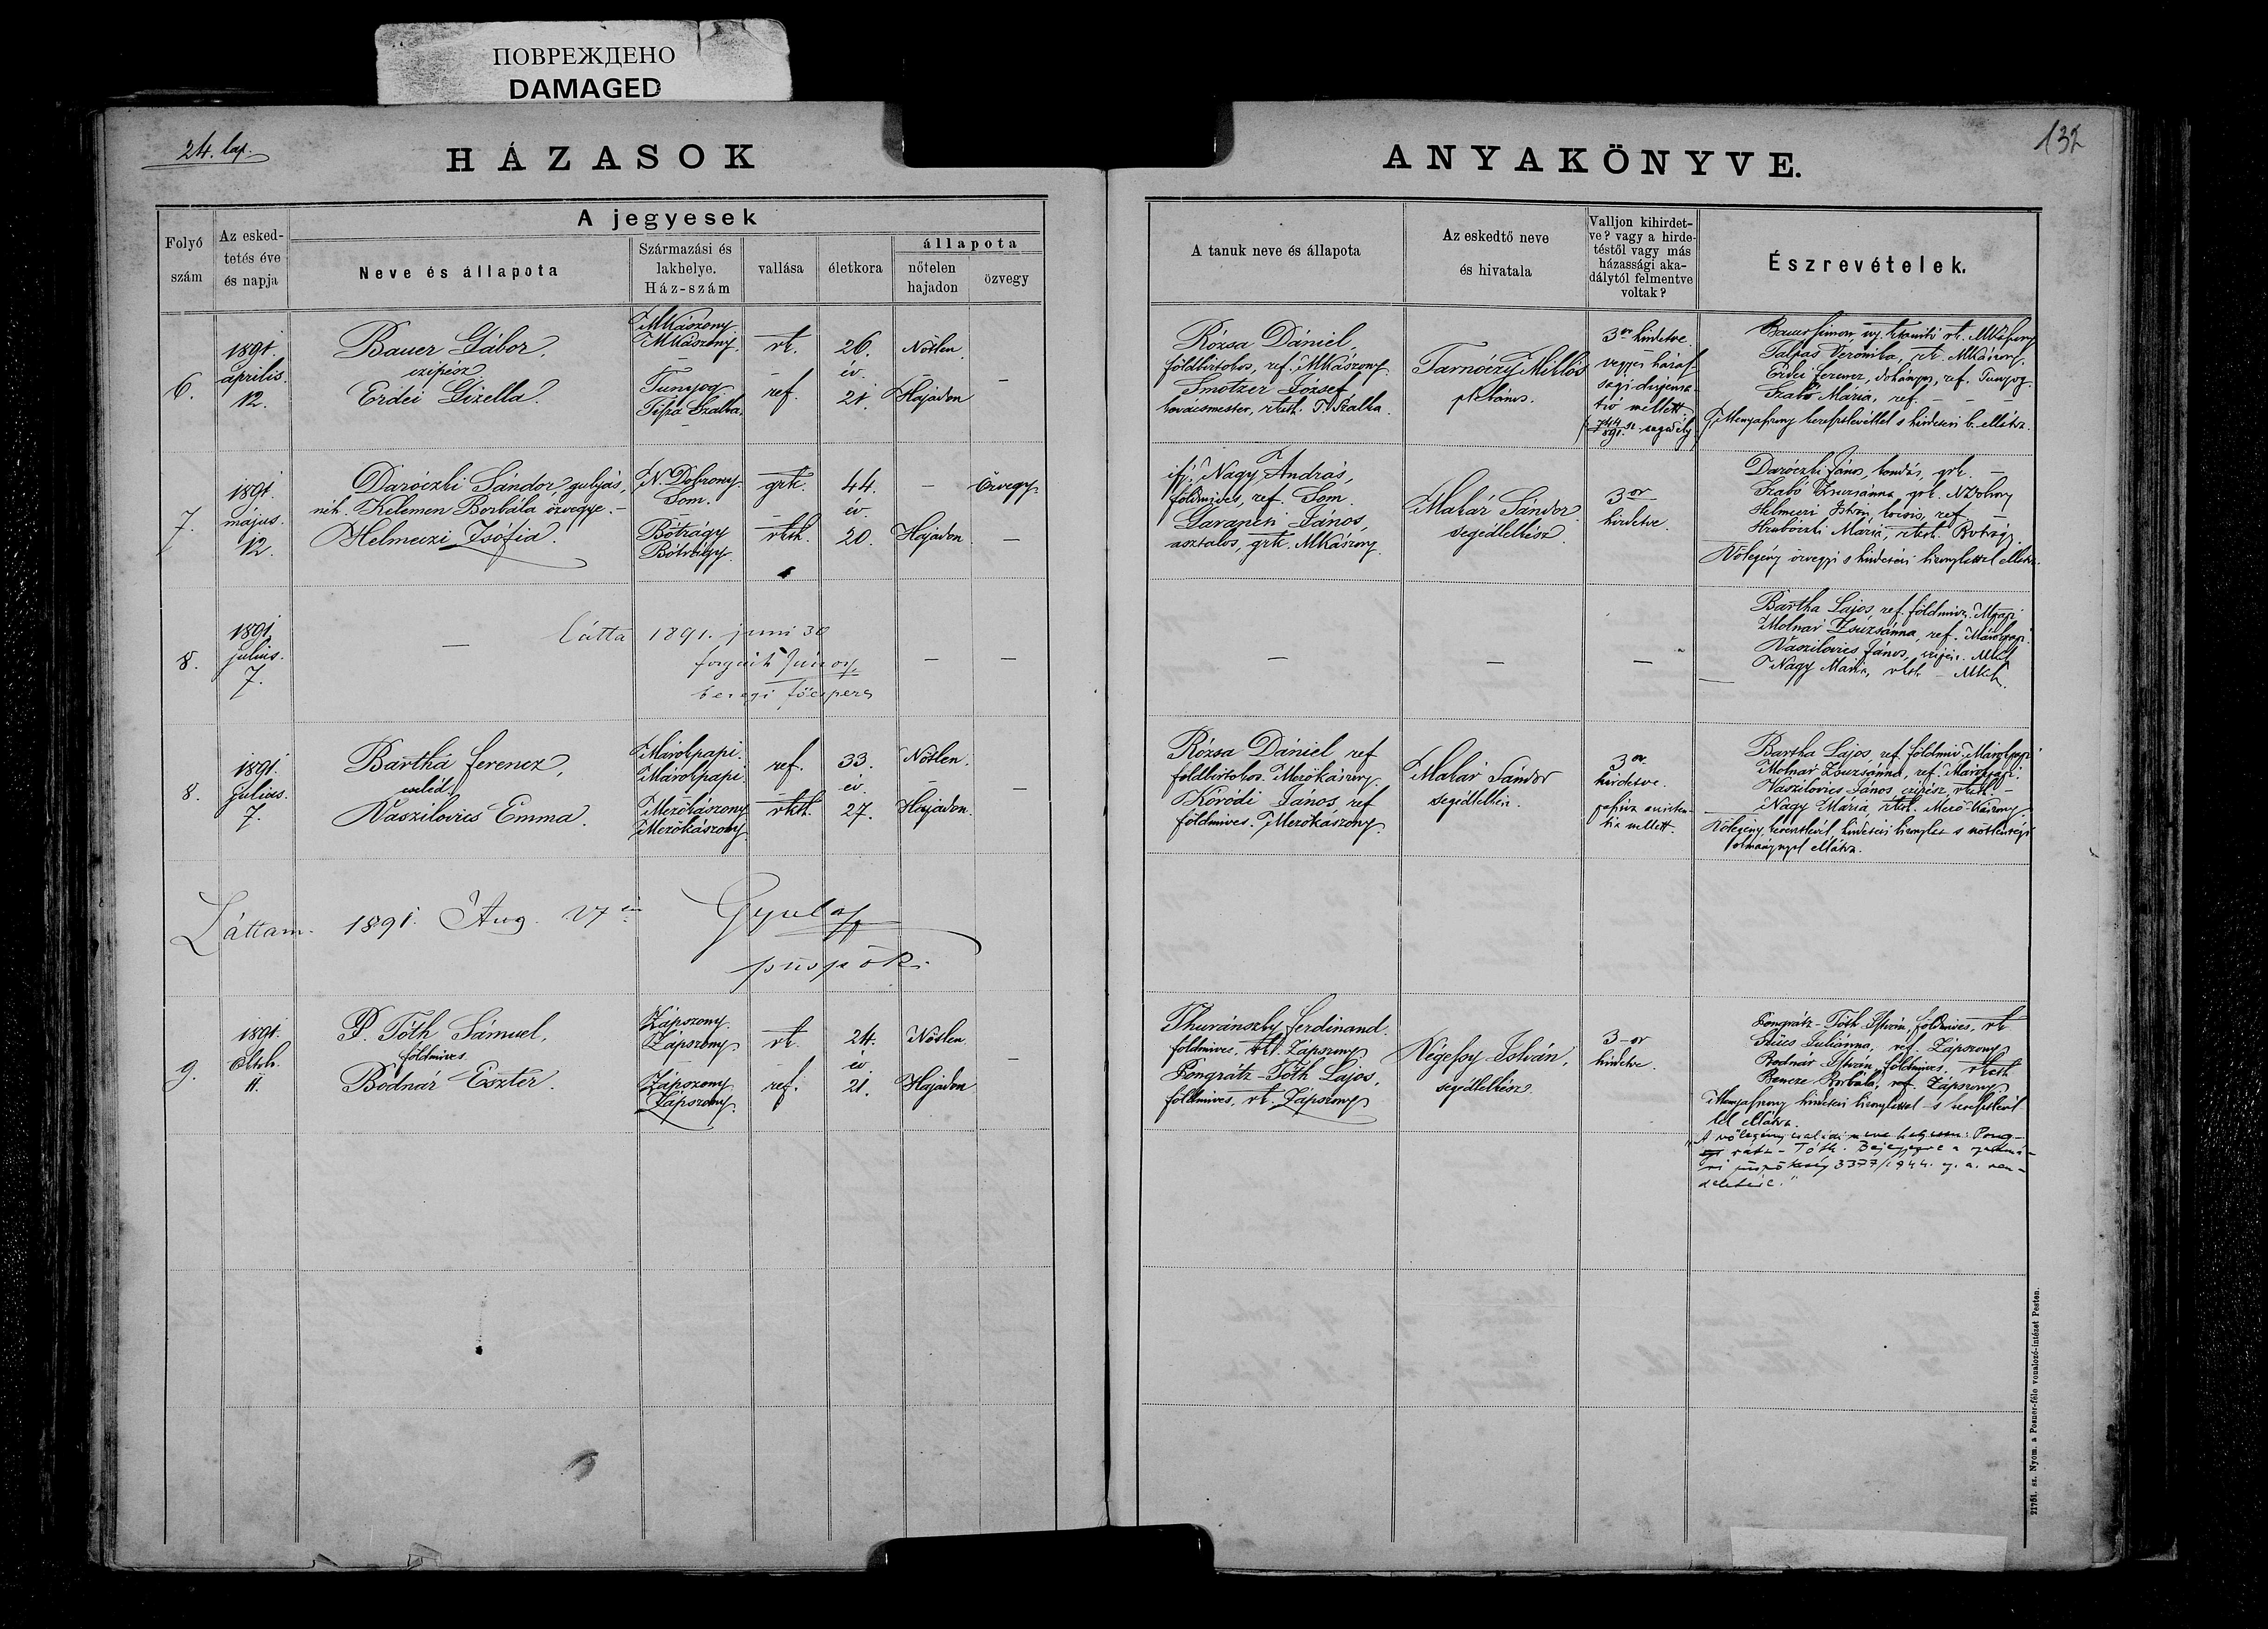 ПОВРЕЖДЕНО
DAMAGED
24. lap.
132
HÁZASOK
ANYAKÖNYVE.
Folyó szám
Az esked-
tetés éve
és napja
A jegyesek
Neve és állapota
Származási és
lakhelye.
Ház-szám
vallása
életkora
állapota
nőtelen
hajadon
özvegy
A tanuk neve és állapota
Az eskedtő neve
és hivatala
Valljon kihirdet-
ve? vagy a hirde-
téstől vagy más
házassági aka-
dálytól felmentve
voltak?
Észrevételek.
6.
1891.
április.
12.
Bauer Gábor,
czipész
Erdei Gizella.
MKászony
MKászony.
Tunyog
Tisza Szalka.
rk.
ref.
26.
év.
21.
Nőtlen.
Hajadon
Rózsa Dániel,
földbirtokos, ref. MKászony
Smotzer József
kovácsmester, rkth. T. Szalka.
Tarnóczy Miklós
plébános.
3or hirdetve.
vegyes házas-
sági dispensa-
tió mellett
Talpas Veronika, rk. MKászony.
Erdei Ferencz, dohányos, ref. Tunyog.
Szabó Mária, ref.
7.
1891.
május.
12.
Daróczki Sándor, gulyás,
néh. Kelemen Borbála özvegye.
Helmeczi Zsófia.
N. Dobrony
Som.
Bótrágy
Bótrágy
grk.
rkth.
44.
év.
20.
Özvegy
Hajadon.
ifj. Nagy András,
földmives, ref. Som.
Garanczi János,
asztalos, grk. MKászony.
Makár Sándor
segédlelkész.
3or
hirdetve.
Daróczki János, kondás, grk.
Szabó Zsuzsánna, grk. NDobrony
Helmeczi István, kocsis, ref.
Hrabóczki Mária, rkth. Botrágy.
Vőlegény özvegyi s hirdetési bizonylattal ellátva.
8.
1891.
julius.
7.
Látta 1891. juni 30
beregi főesperes
Bartha Lajos, ref. földmives. Mpapi
Molnár Zsuzsánna, ref. Márokpapi.
Vaszilovics János, czipész. MK
Nagy Mária, rkth. MK
8.
1891.
Julius.
7.
Bartha Ferencz,
cseléd.
Vaszilovics Emma.
Márokpapi.
Márokpapi.
Mezőkászony
Mezőkászony.
ref.
rkth.
33.
év.
27.
Nőtlen.
Hajadon.
Rózsa Dániel, ref
földbirtokos. Mezőkászony.
Kóródi János, ref
földmives. Mezőkászony.
Makár Sándor
segédlelkész.
3or
hirdetve.
mellett.
Bartha Lajos, ref. földmiv. Márokpapi
Molnár Zsuzsánna, ref. Márokpapi.
Vaszilovics János, czipész, rkth.
Nagy Mária, rkth. Mező-Kászony
Vőlegény keresztlevél, hirdetési bizonylat s nőtlenségi
okmánynyal ellátva.
Láttam. 1891. Aug. 27én
Gyula
püspök.
9.
1891.
Oktob.
11.
P. Tóth Sámuel,
földmives.
Bodnár Eszter.
Zápszony.
Zápszony.
Zápszony
Zápszony.
rk.
ref.
24.
év.
21.
Nőtlen
Hajadon
Thuránszky Ferdinand.
földmives, rkt. Zápszony
Pongrátz-Tóth Lajos,
földmives, rk. Zápszony
Végessy István,
segédlelkész.
3-or
hirdetve.
Pongrátz-Tóth István, földmives, rk
Szűcs Juliánna, ref. Zápszony
Bodnár István, földmives, rkth
Bencze Borbála, ref. Zápszony
Menyasszony hirdetési bizonylattal s keresztlevél-
lel ellátva.
"A vőlegény családi neve helyesen: Pong-
rátz-Tóth. Bejegyezve a szatmá-
ri püspökség 3377/1944. sz. a. ren-
deletére."
21751. sz. Nyom. a Posner-féle vonalozó-intézet Pesten.